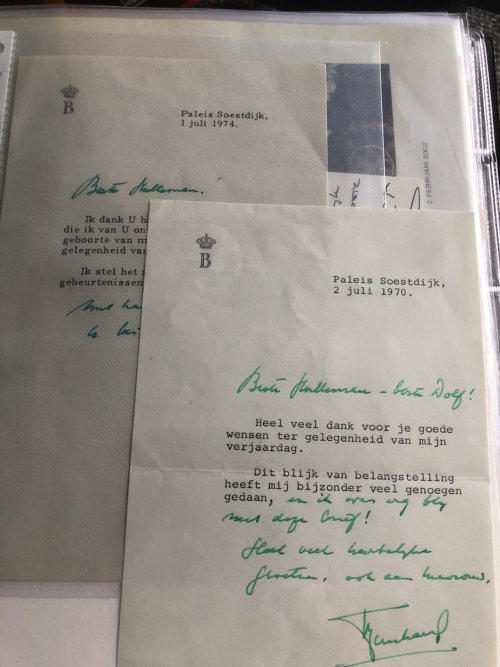 B
Paleis Soestdijk,
1 juli 1974.
Beste Halleman!
Ik dank U h
die ik van U on
geboorte van m
gelegenheid va
Ik stel het
gebeurtenissen
met
2 FEBRUARI 2002
B
Paleis Soestdijk,
2 juli 1970.
Beste Halleman – beste Dolf!
Heel veel dank voor je goede
wensen ter gelegenheid van mijn
verjaardag.
Dit blijk van belangstelling
heeft mij bijzonder veel genoegen
gedaan, en ik was erg blij
met deze brief!
Heel veel hartelijke
Groeten, ook aan mevrouw.
Bernhard